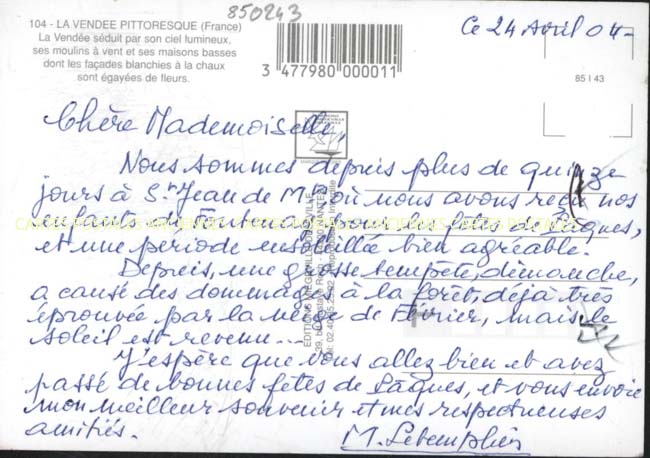 850243
104 - LA VENDEE PITTORESQUE (France)
La Vendée séduit par son ciel lumineux,
ses moulins à vent et ses maisons basses
dont les façades blanchies à la chaux
sont égayées de fleurs.
3 477980 000011
Ce 24 Avril 04-
85 I 43
Chère Mademoiselle,
Nous sommes depuis plus de quinze
jours à St Jean de M. où nous avons reçu nos
enfants de Fontenay, pour les fêtes de Pâques,
et une période ensoleillée bien agréable.
Depuis, une grosse tempête, dimanche,
a causé des dommages à la forêt, déjà très
éprouvée par la neige de Février, mais le
soleil est revenu...
J'espère que vous allez bien et avez
passé de bonnes fêtes de Pâques, et vous envoie
mon meilleur souvenir et mes respectueuses
amitiés.